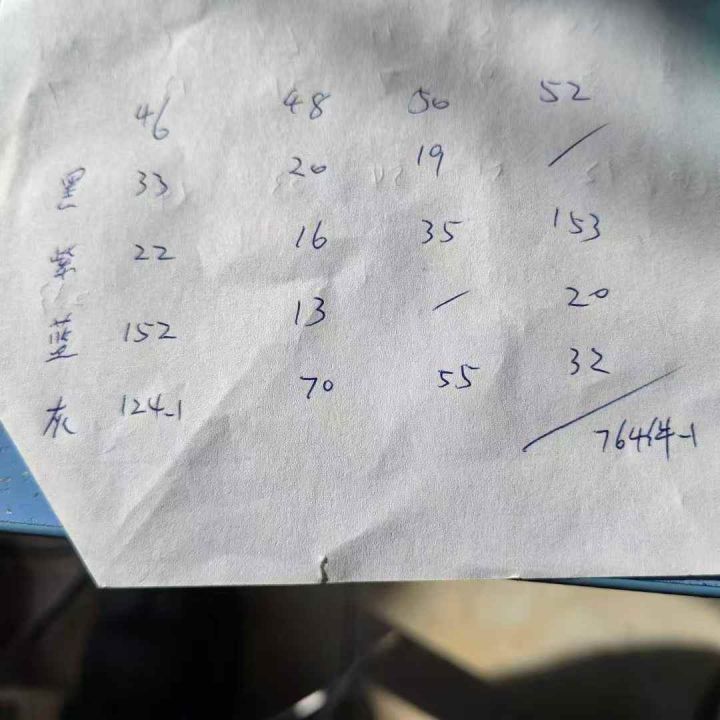 46 48 50 52
黑 33 20 19 /
紫 22 16 35 153
蓝 152 13 / 20
灰 124-1 70 55 32
764件-1